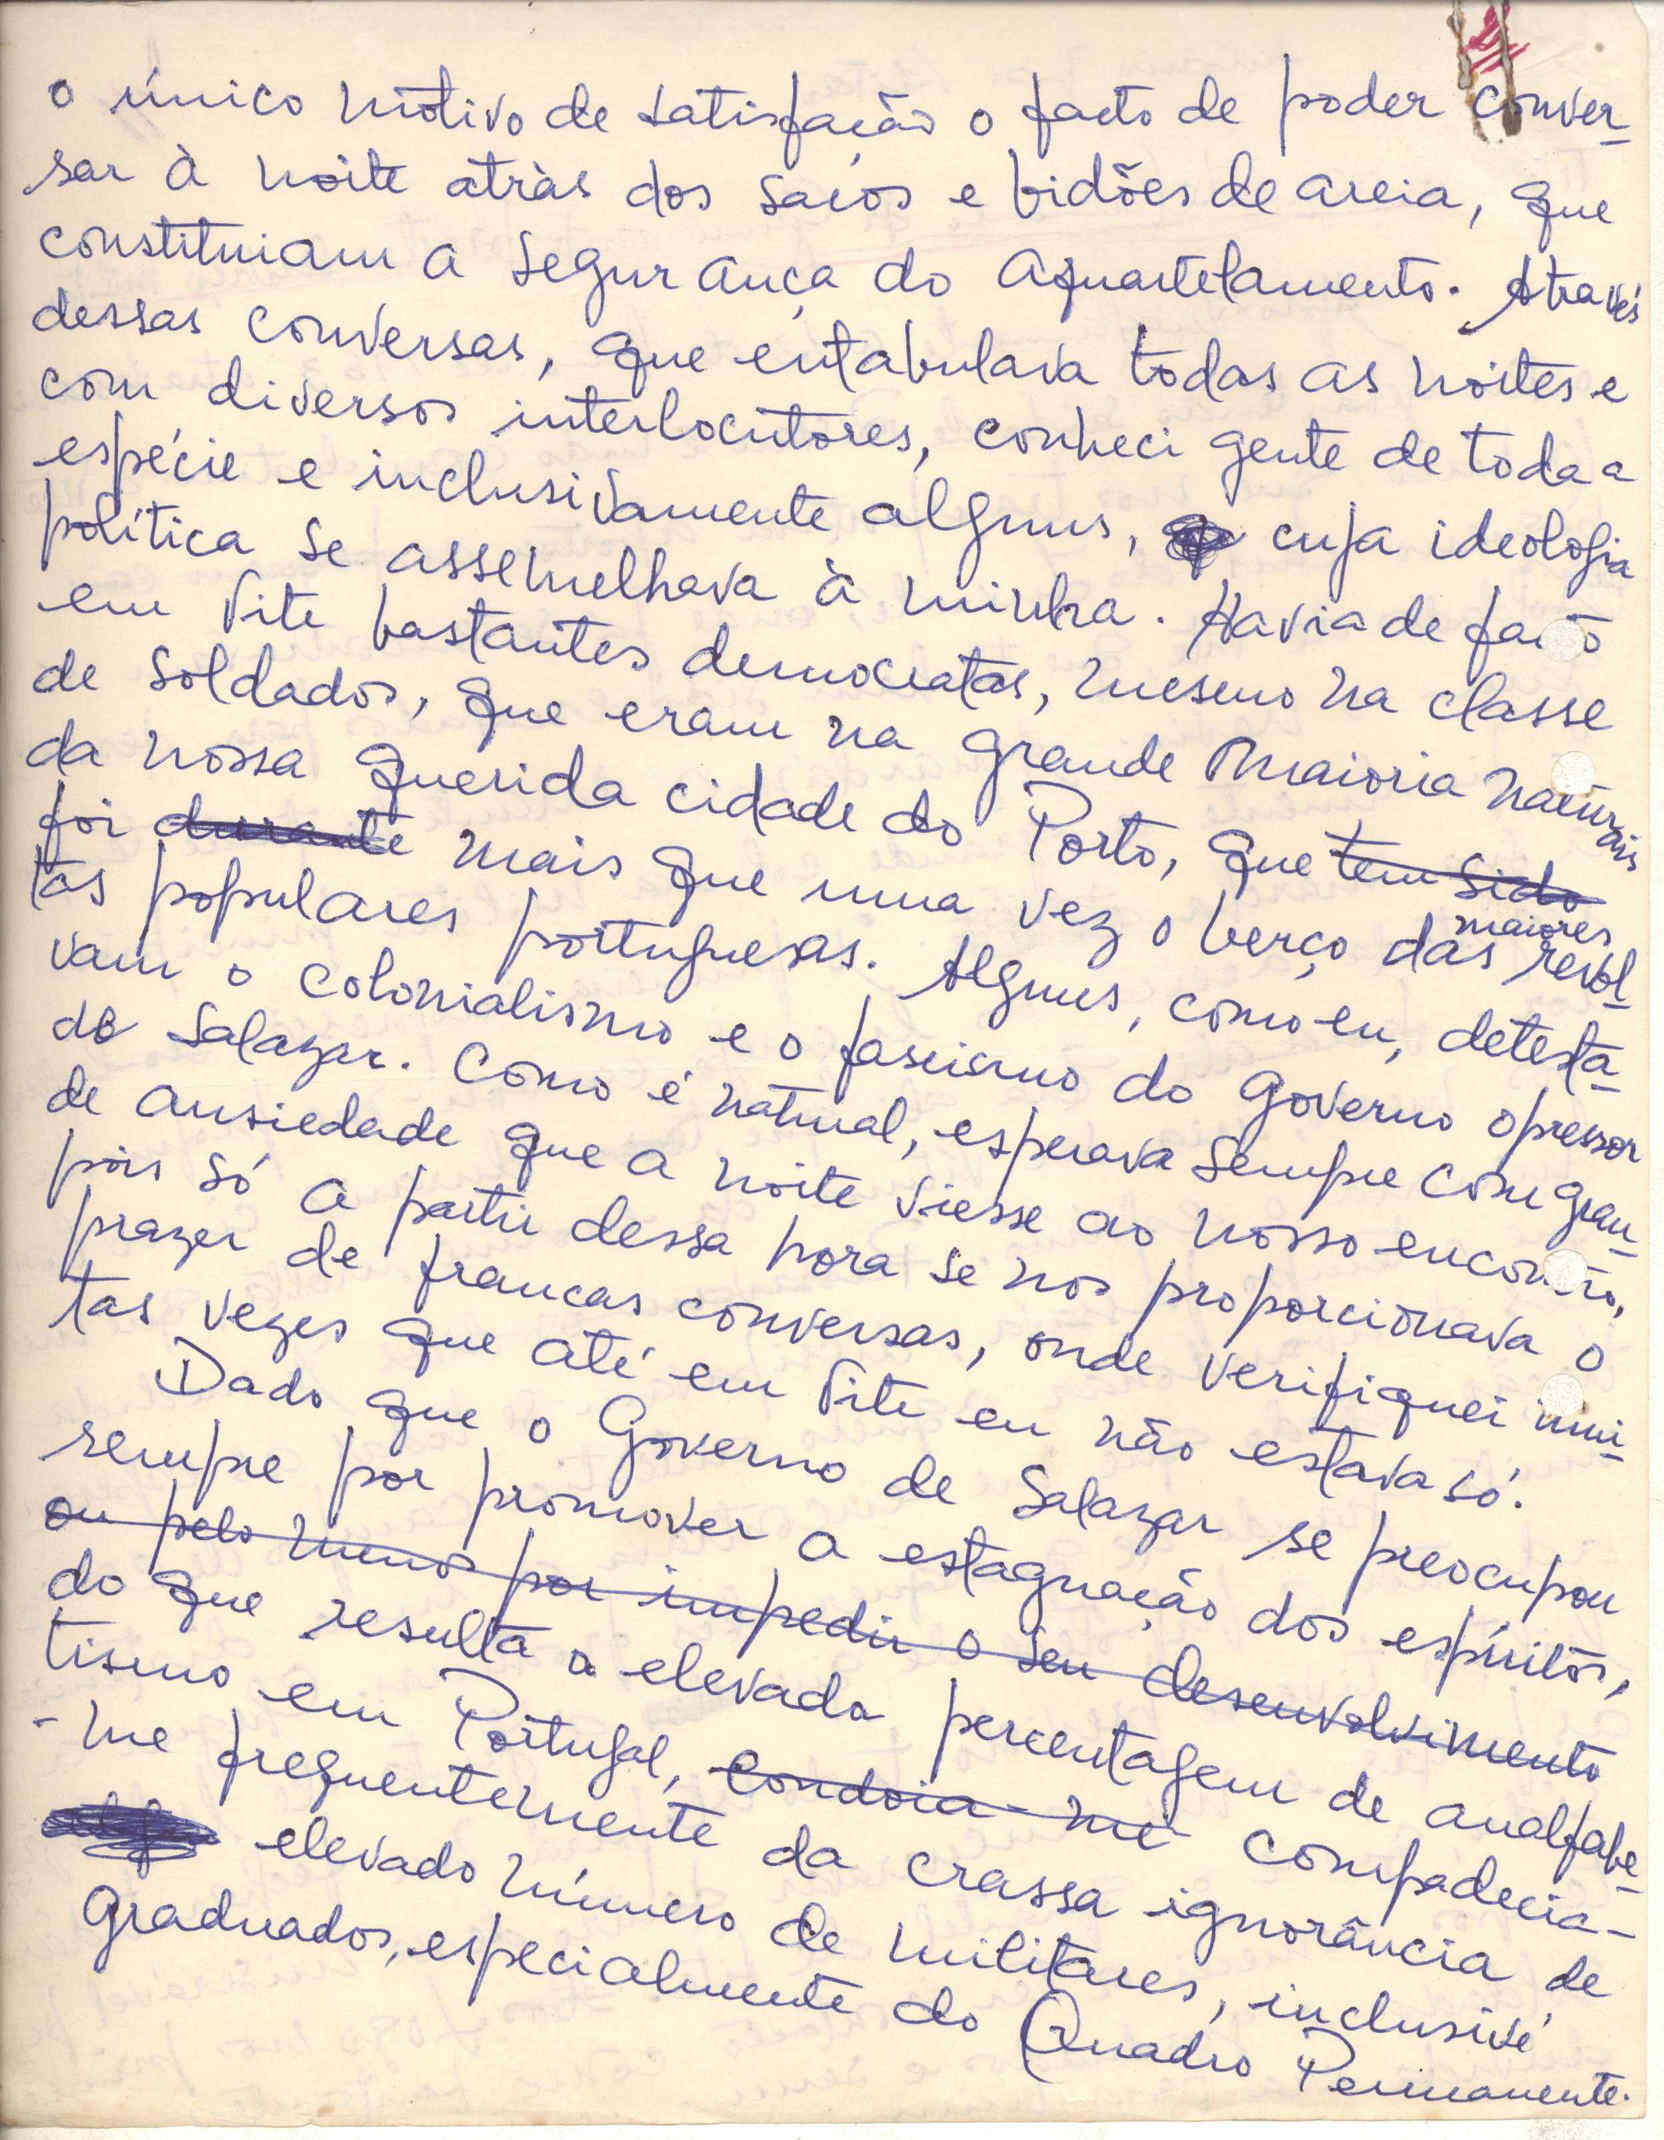 o único motivo de satisfação o facto de poder conver-
sar à noite atràs dos sacos e bidões de areia, que
constituiam a segurança do aquartelamento. Através
dessas conversas, que entabulava todas as noites e
com diversos interlocutores, conheci gente de toda a
espécie e inclusivamente alguns, cuja ideologia
política se assemelhava à minha. Havia de facto
em Tite bastantes democratas, mesmo na classe
de soldados, que eram na grande maioria naturais
da nossa querida cidade do Porto, que tem sido
foi durante mais que uma vez o berço das maiores revol-
tas populares portuguesas. Alguns, como eu, detesta-
vam o colonialismo e o fascismo do governo opressor
de Salazar. Como é natural, esperava sempre com gran-
de ansiedade que a noite viesse ao nosso encontro,
pois só a partir dessa hora se nos proporcionava o
prazer de francas conversas, onde verifiquei mui-
tas vezes que até em Tite eu não estava só.
Dado que o Governo de Salazar se preocupou
sempre por promover a estagnação dos espíritos,
ou pelo menos por impedir o seu desenvolvimento
do que resulta a elevada percentagem de analfabe-
tismo em Portugal, condoia-me compadecia-
-me frequentemente da crassa ignorância de
elevado número de militares, inclusivé
graduados, especialmente do Quadro Permanente.